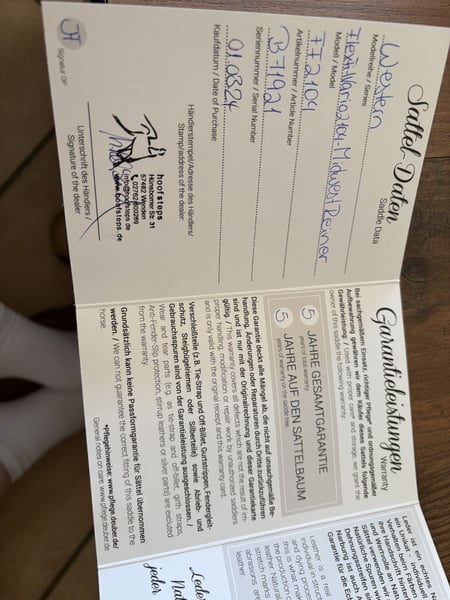 Sattel-Daten
Saddle Data
Western
Modellreihe / Series
Flexi-Vario 2104 - Midwest Reiner
Modell / Model
FF2104
Artikelnummer / Article Number
B71921
Seriennummer / Serial Number
01.03.24
Kaufdatum / Date of Purchase
Händlerstempel/Adresse des Händlers/
Stamp/address of the dealer
hoofsteps
Hünsborner Str. 31
57482 Wenden
info@hoofsteps.de
www.hoofsteps.de
Unterschrift des Händlers /
Signature of the dealer
Signatur OP
Garantieleistungen
Warranty
Bei sachgemäßem Einsatz, richtiger Pflege* und ordnungsgemäßer
Aufbewahrung gewähren wir dem Käufer dieses Sattels folgende
Gewährleistung: / Used with proper care* and storage, we grant the
owner of this saddle the following warranty:
5 JAHRE GESAMTGARANTIE
years of total warranty
5 JAHRE AUF DEN SATTELBAUM
years of warranty on the saddle tree
Diese Garantie deckt alle Mängel ab, die nicht auf unsachgemäße Be-
handlung, Änderungen oder Reparaturen durch Dritte zurückzuführen
sind und ist nur mit der Originalrechnung und dieser Garantiekarte
gültig. / This warranty covers all defects which are not the result of im-
proper handling, modifications or repair work by unauthorized saddlers
and is only valid with the original receipt and this warranty card.
Verschleißteile (z.B. Tie-Strap und Off-Billet, Gurtstrippen, Fendergleit-
schutz, Steigbügelriemen oder Silberteile) sowie Abrieb- und
Gebrauchsspuren sind von der Garantieleistung ausgeschlossen. /
Wear and tear parts (e.g. as tie-strap and off-billet, girth straps,
Anti-Fender-Slip protection, stirrup leathers or silver parts) are excluded
from the warranty.
Grundsätzlich kann keine Passformgarantie für Sättel übernommen
werden. / We can not guarantee the correct fitting of this saddle to the
horse.
*Pflegehinweise: www.pflege.deuber.de/
General notes on care: www.pflege.deuber.de
Leder ist ein echtes
Leather is a real
individual in structure
and dying process
this is why
the production
leather. Natural
stretch marks
abrasions
leather
Garantie für die
jeder